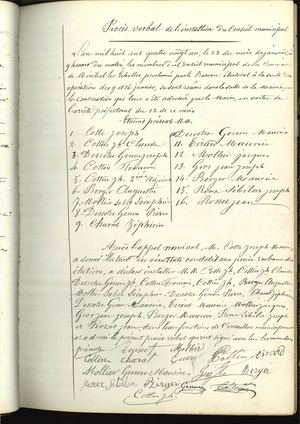 Procès verbal de l'installation du Conseil municipal
L'an mil huit cent quatre vingt un, le 23 du mois de janvier à
heures du matin, les membres du Conseil municipal de la Commune
de Montbel les Echelles proclamés par le Bureau électoral à la suite des
opérations des 9 et 16 janvier, se sont réunis dans la salle de la Mairie,
sur la convocation que leur a été adressée par le Maire, en vertu de
l'arrêté préfectoral du 12 de ce mois
Etaient présents M.M.
1. Cotte Joseph
2. Cottin Jh Claude
3. Descotes Genon Joseph
4. Cottin François
5. Cottin Jh
6. Berger Augustin
7. Mollier Sabet Séraphin
8. Descotes Genon Pierre
9. Charat Zéphirin
Descotes Genon Maurice
11. Evrard Maurice
12. Mollier Jacques
13. Gros Jean Joseph
14. Berger Maurice
15. Roux Sibilon Joseph
16. Rosset Jean
Après l'appel nominal, M. Cotte Joseph Maire,
a donné lecture des résultats constatés aux procès verbaux des
élections, a déclaré installer M.M. Cotte Jh, Cottin Jh Claude,
Descotes Genon Jh, Cottin François, Cottin Jh, Berger Augustin,
Mollier Sabet Séraphin, Descotes Genon Pierre, Charat Zéphirin
Descotes Genon Maurice, Evrard Maurice, Mollier Jacques,
Gros Jean Joseph, Berger Maurice, Roux Sibilon Joseph
et Rosset Jean dans leurs fonctions de Conseillers municipaux
et a dressé le présent procès verbal qu'ont signé avec lui les membres
présents
Cottin Charat
Cottin Evrard
Mollier Genon Maurice
Berger
Roux Sibilon Berger
Cottin Jh